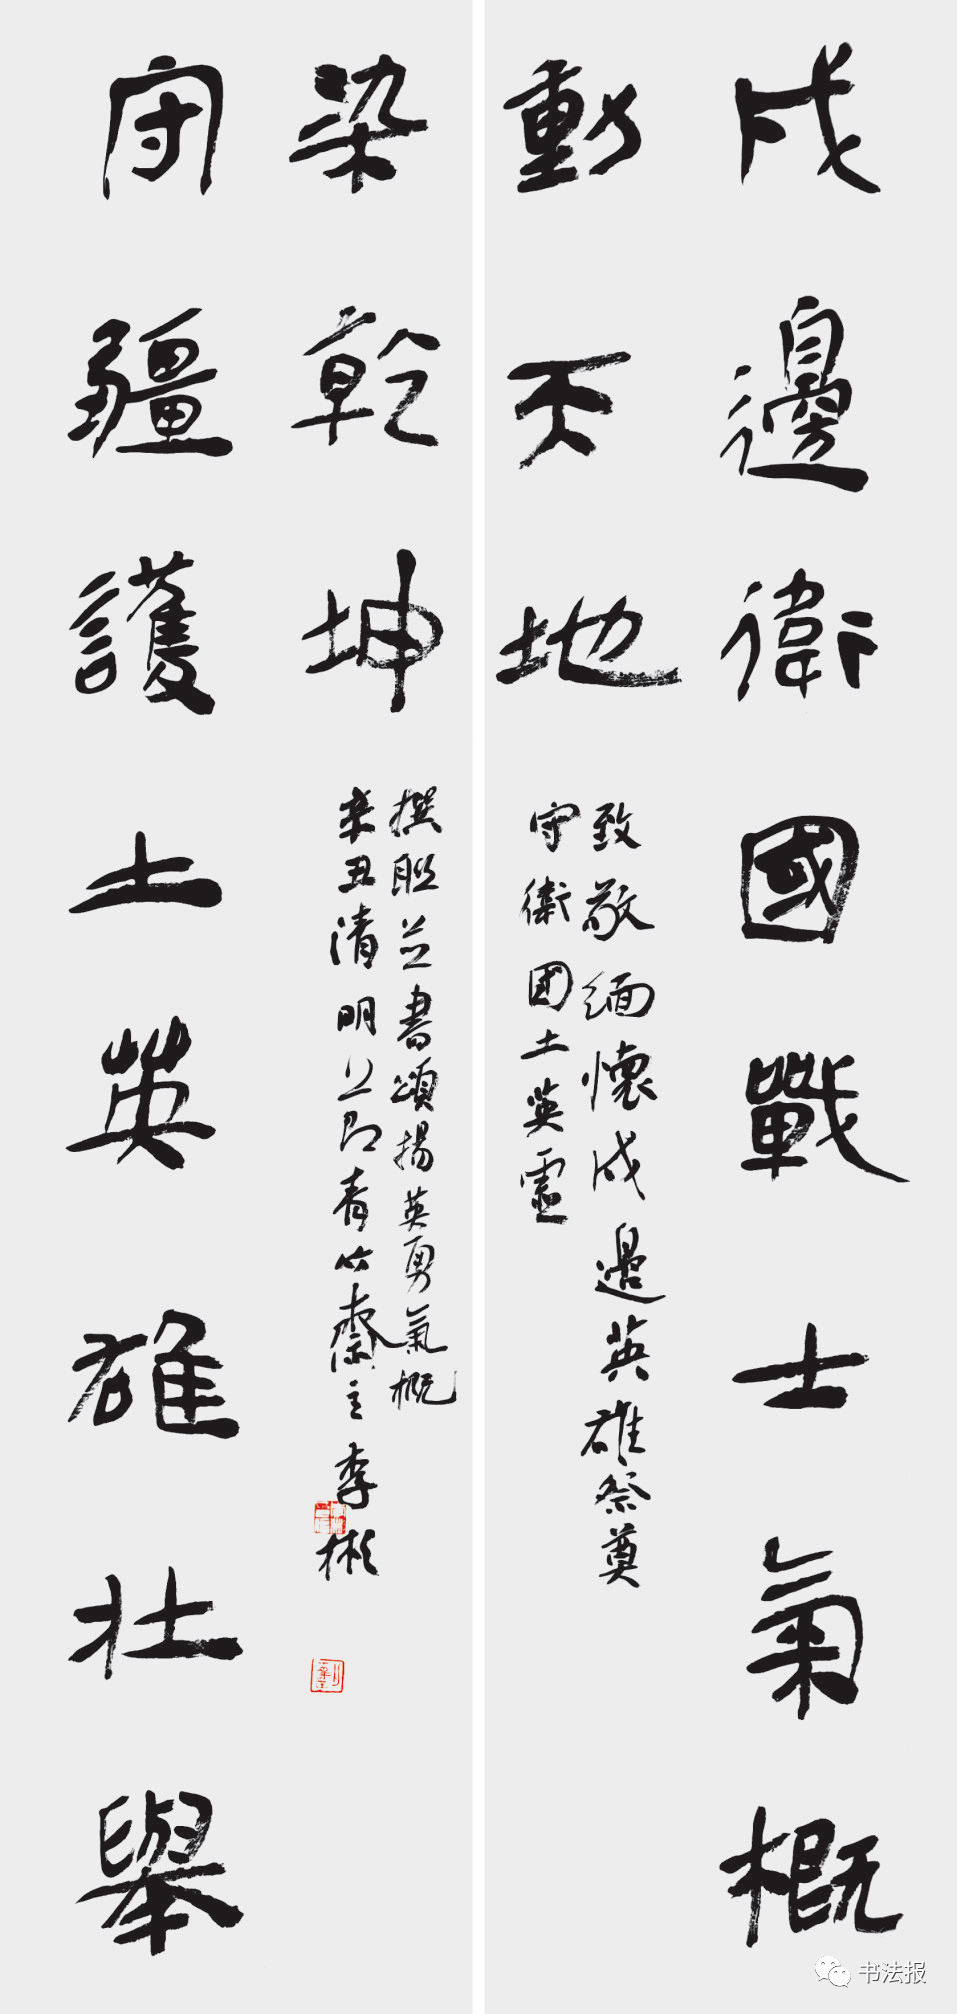 戍邊衛國戰士氣概
動天地
致敬緬懷戍邊英雄祭奠
守衛國土英靈
染乾坤
守疆護土英雄壯舉
撰聯並書頌揚英勇氣概
辛丑清明
青竹齋主李彬
书法报